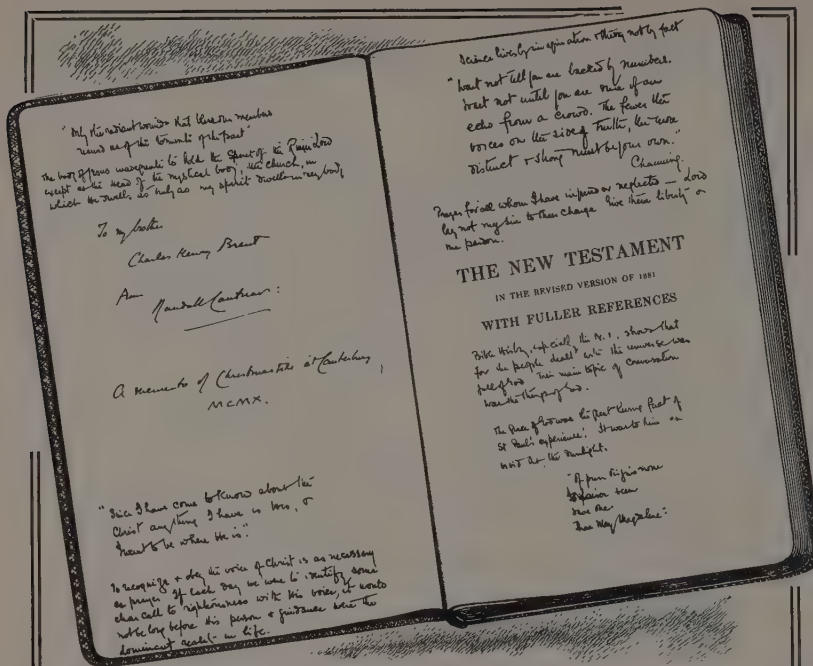 "Only the radiant wounds that Thine own members
remind us of the torments of the past"
The body of Jesus inadequate to hold the Spirit of the Risen Lord
except as the Head of the mystical body, the church, in
which He dwells as truly as my spirit dwells in my body
To my brother
Charles Henry Brent
from
Randall Cantuar:
A memento of Christmastide at Canterbury,
MCMX.
"Since I have come to know about the
Christ anything I have is loss, &
I want to be where He is".
To recognize & obey the voice of Christ is as necessary
as prayer. If each day we were to identify some
clear call to righteousness with His voice, it would
not be long before His person & guidance were the
dominant reality in life.
Science lives by inspiration & theory not by fact
"Wait not till you are backed by numbers.
Wait not until you are sure of an
echo from a crowd. The fewer the
voices on the side of Truth, the more
distinct & strong must be your own."
Channing.
Prayer for all whom I have injured or neglected — Lord
lay not my sin to their charge. Give them liberty
THE NEW TESTAMENT
IN THE REVISED VERSION OF 1881
WITH FULLER REFERENCES
Bible History, especially the N.T., shows that
for the people dealt with the universe was
full of God. Their main topic of conversation
was the things of God.
The Peace of God was the great living fact of
St Paul's experience. It was to him as
the sunlight.
"Of
seen
save one
Mary Magdalene: